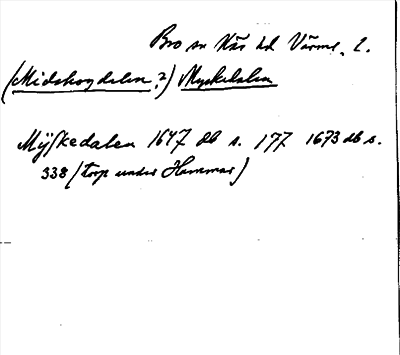 Bro sn Näs hd Värml. l.
(Midskogdalen?) Myskedalen
Mÿskedalen 1647 db s. 177 1673 db s.
338 (torp under Hammar)